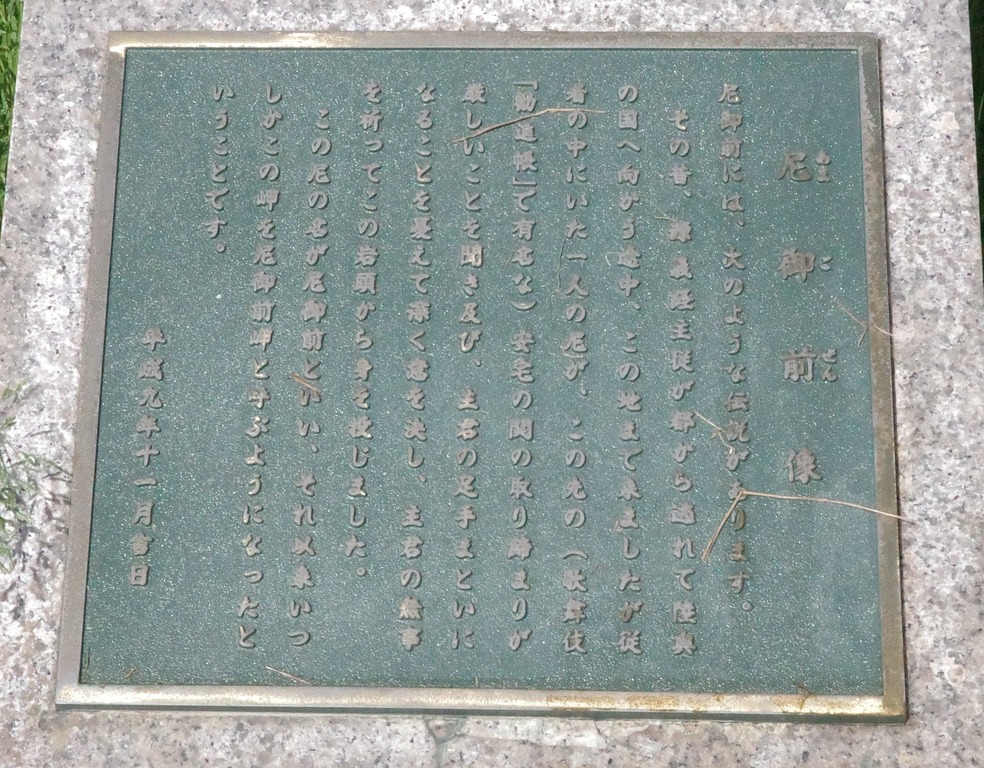 尼御前像
あま ご ぜん
尼御前には、次のような伝説があります。
その昔、源義経主従が都から逃れて陸奥
の国へ向かう途中、この地まで来ましたが従
者の中にいた一人の尼が、この先の（歌舞伎
「勧進帳」で有名な）安宅の関の取り締まりが
厳しいことを聞き及び、主君の足手まといに
なることを憂えて深く意を決し、主君の無事
を祈ってこの岩頭から身を投じました。
この尼の名が尼御前といい、それ以来いつ
しかこの岬を尼御前岬と呼ぶようになったと
いうことです。
平成九年十一月吉日